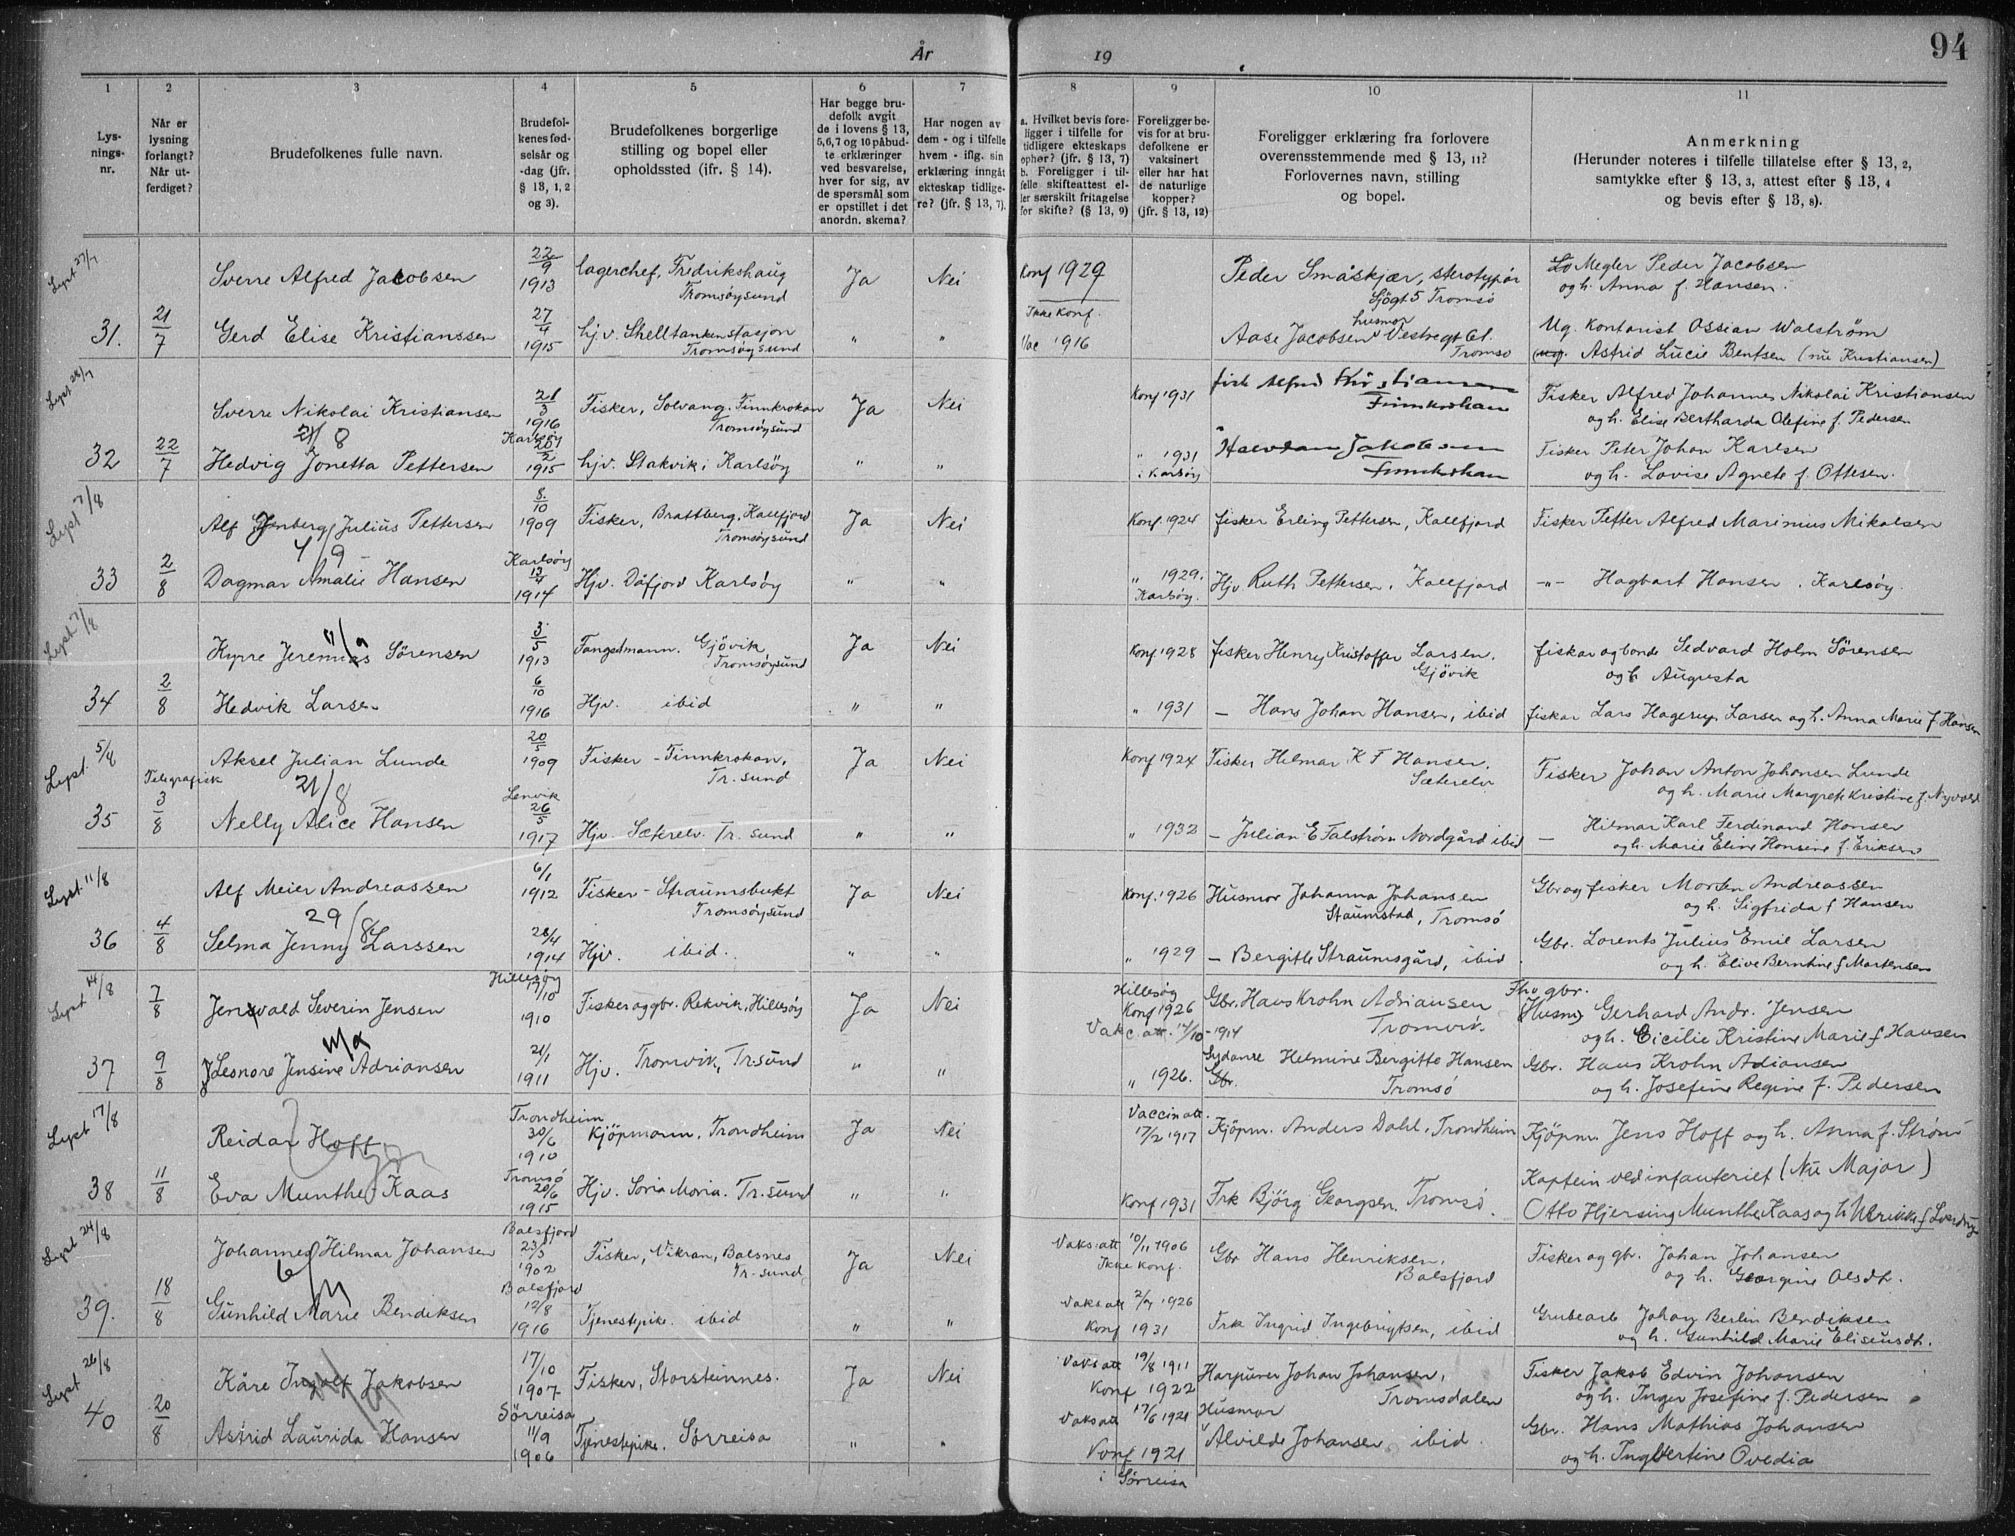 År 19
94
1 2 3 4 5 6 7 8 9 10 11
Lys-
nings-
nr.
Når er
lysning
forlangt?
Når ut-
ferdiget?
Brudefolkenes fulle navn.
Brudefol-
kenes fød-
selsår og
-dag (jfr.
§ 13, 1, 2
og 3).
Brudefolkenes borgerlige
stilling og bopel eller
opholdssted (ifr. § 14).
Har begge bru-
defolk avgit
de i lovens § 13,
5,6,7 og 10 påbud-
te erklæringer
ved besvarelse,
hver for sig, av
de spørsmål som
er opstillet i det
anordn. skema?
Har nogen av
dem - og i tilfelle
hvem - iflg. sin
erklæring inngåt
ekteskap tidlige-
re? (jfr. § 13, 7).
a. Hvilket bevis fore-
ligger i tilfelle for
tidligere ekteskaps
ophør? (jfr. § 13, 7)
b. Foreligger i til-
felle skifteattest el-
ler særskilt fritagelse
for skifte? (§ 13, 9)
Foreligger be-
vis for at bru-
defolkene er
vaksinert
eller har hat
de naturlige
kopper?
(jfr. § 13, 12)
Foreligger erklæring fra forlovere
overensstemmende med § 13, 11?
Forlovernes navn, stilling
og bopel.
Anmerkning
(Herunder noteres i tilfelle tillatelse efter § 13, 2,
samtykke efter § 13, 3, attest efter § 13, 4
og bevis efter § 13, 8).
Lyst 27/7
Sverre Alfred Jacobsen 22/9 1913 lagerchef, Fredrikshaug Tromsøysund Ja Nei Konf 1929 Peder Småskjær, sterotypør Sjøgt 5 Tromsø Megler Peder Jacobsen og h. Anna f. Hansen.
31. 21/7 Gerd Elise Kristianssen 27/4 1915 hjv. Shelltankenstasjon Tromsøysund " " Ikke konf. Vac 1916 Aase Jacobsen husmor Vestregt 61. Tromsø Ug. Kontorist Ossian Walstrøm
(ug. Astrid Lucie Bentsen (nu Kristiansen)
Lyst 28/7
Sverre Nikolai Kristiansen 21/3 1916 Fisker, Solvang, Finnkroken Tromsøysund Ja Nei Konf 1931 fisk Alfred Kristiansen Finnkroken Fisker Alfred Johannes Nikolai Kristiansen og h. Elise Bertharda Olefine f. Pedersen
21/8
32 22/7 Hedvig Jonetta Pettersen Karlsøy 20/2 1915 hjv. Stakvik i Karlsøy " " " 1931 i Karlsøy Halvdan Jakobsen Finnkroken Fisker Peter Johan Karlsen og h. Lovise Agnete f. Ottesen.
Lyst 7/8
Alf Jenberg Julius Pettersen 8/10 1909 Fisker, Brattberg, Kallfjord Tromsøysund Ja Nei Konf. 1924 fisker Erling Pettersen, Kallfjord Fisker Petter Alfred Marinius Nikolsen
4/9
33 2/8 Dagmar Amalie Hansen Karlsøy 13/4 1914 Hjv. Dåfjord Karlsøy " " " 1929. Karlsøy. Hjv Ruth Pettersen, Kallfjord -"- Hagbart Hansen, Karlsøy.
Lyst 7/8
Kyrre Jeremias Sørensen 3/5 1913 Fangstmann. Gjøvik Tromsøysund Ja Nei Konf 1928 fisker Henry Kristoffer Larsen. Gjøvik fisker og bonde Sedvard Holm Sørensen og h Augusta
11/9
34 2/8 Hedvik Larsen 6/10 1916 Hjv. ibid " " " 1931 – Hans Johan Hansen, ibid fisker Lars Hagerup Larsen og h. Anna Marie f Hansen
Lyst. 5/8
Aksel Julian Lunde 20/5 1909 Fisker – Finnkroken, Tr. sund Ja Nei Konf 1924 Fisker Hilmar K F Hansen. Sæterelv Fisker Johan Anton Johansen Lunde og h. Marie Margrete Kristine f. Nyvold
Telegrafisk 21/8
35 3/8 Nelly Alice Hansen Lenvik 26/5 1917 Hjv. Sæterelv. Tr. sund " " " 1932 – Julian E Falstrøm Nordgård ibid – Hilmar Karl Ferdinand Hansen og h. Marie Eline Hansine f. Eriksen
Lyst. 11/8
Alf Meier Andreassen 6/1 1912 Fisker – Straumsbukt Tromsøysund Ja Nei Konf. 1926 Husmor Johanna Johansen Staumstad, Tromsø Gbr og fisker Morten Andreassen og h. Sigfrida f Hansen
29/8
36 4/8 Selma Jenny Larssen 28/4 1914 Hjv. ibid. " " " 1929 – Bergitte Straumsgård, ibid Gbr. Lorents Julius Emil Larsen og h. Elive Berntine f Mortensen
Lyst 14/8
7/8 Jensvald Severin Jensen Hillesøy 17/10 1910 Fisker og gbr. Rekvik, Hillesøy Ja Nei Hillesøy Konf 1926 Vakc. att. 14/10 -1914 Gbr. Hans Krohn Adriansen Tromvik gbr. Gerhard Andr. Jensen og h. Cicilie Kristine Marie f Hansen
37 9/8 Lesnore Jensine Adriansen 21/1 1911 Hjv. Tromvik, Tr. sund " " " 1926. Helmine Bergitte Hansen Tromsø Gbr. Hans Krohn Adiansen og h. Josefine Regine f. Pedersen
Lyst 17/8
Reidar Hoff Trondheim 30/6 1910 Kjøpmann, Trondheim Ja Nei Vaccinatt. 17/2 1917 Kjøpm. Anders Dahl, Trondheim Kjøpm. Jens Hoff og h. Anna f. Strøm
38 11/8 Eva Munthe Kaas Tromsø 20/6 1915 Hjv. Soria Moria. Tr. sund " " Konf 1931 Frk Bjørg Georgsen, Tromsø. Kaptein ved infanteriet (Nu Major)
Otto Hjersing Munthe Kaas og h Ulrikke f
Lyst 24/8
Johannes Hilmar Johansen Balsfjord 23/3 1902 Fisker, Vikran, Balsnes Tr. sund Ja Nei Vaks. att 10/11 1906 Ikke konf. Gbr Hans Henriksen, Balsfjord Fisker og gbr. Johan Johansen og h. Georgine Olsdt.
39. 18/8 Gunhild Marie Bendiksen Balsfjord 12/8 1916 Tjenestepike. ibid " " Vaks att 2/7 1926 Konf 1931 Frk Ingrid Ingebrigtsen, ibid Grubearb Johan Berlin Bendiksen og h. Gunhild Marie Eliseusdt.
Lyst 26/8
Kåre Ingolf Jakobsen 17/10 1907 Fisker, Storsteinnes. Ja Nei Vaks att 19/8 1911 Konf 1922 Harpuner Johan Johansen, Tromsdalen Fisker Jakob Edvin Johansen og h. Inger Josefine f. Pedersen
40 20/8 Astrid Laurida Hansen Sørreisa 11/9 1906 Tjenestepike. Sørreisa " " Vaks att 17/6 1921 Konf 1921 i Sørreisa Husmor Alvilde Johansen ibid. Gbr. Hans Mathias Johansen og h. Ingbertine Ovedia